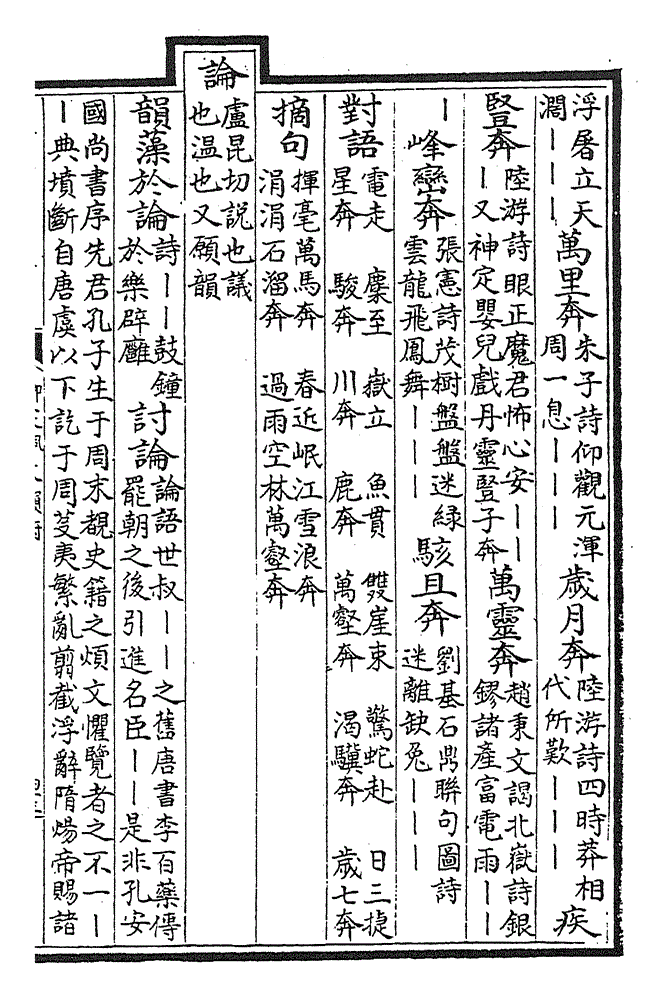 浮屠立天濶———萬里奔朱子詩仰觀元渾周一息———歲月奔陸游詩四時莽相代所歎———疾
豎奔陸游詩眼正魔君怖心安———又神定嬰兒戲丹靈豎子奔萬靈奔趙秉文謁北嶽詩銀鏐諸產富電雨——
—峰巒奔張憲詩茂樹盤盤迷綠雲龍飛鳳舞———駭且奔劉基石鼎聯句圖詩迷離缺兔———
對語電走 麋至 嶽立 魚貫 雙崖束 驚蛇赴 日三捷
星奔 駿奔 川奔 鹿奔 萬壑奔 渴驥奔 歲七奔
摘句揮毫萬馬奔 春近岷江雪浪奔
涓涓石溜奔 過雨空林萬壑奔
論盧昆切說也議也温也又願韻
韻藻於論詩——鼓鐘於樂辟廱討論論語世叔——之舊唐書李百藥傳罷朝之後引進名臣——是非孔安
國尚書序先君孔子生于周末覩史籍之煩文懼覽者之不一—
—典墳斷自唐虞以下訖于周芟夷繁亂剪截浮辭隋煬帝賜諸